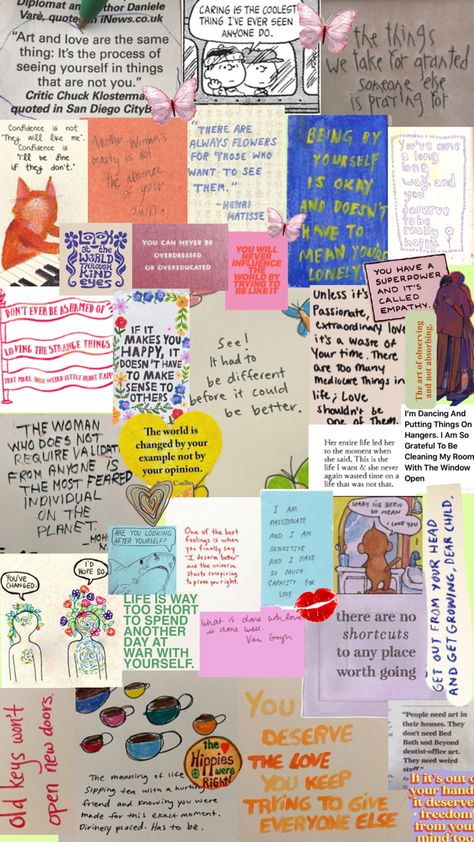 Diplomat and author Daniele
Varè, quoted on iNews.co.uk
"Art and love are the same
thing: It's the process of
seeing yourself in things
that are not you."
Critic Chuck Klosterman,
quoted in San Diego CityB
CARING IS THE COOLEST
THING I'VE EVER SEEN
ANYONE DO.
the things
we take for granted
someone else
is praying for
Confidence is not
"They will like me".
Confidence is
"I'll be fine
if they don't."
Another woman's
beauty is not
the absence
of your
own
"THERE ARE
ALWAYS FLOWERS
FOR THOSE WHO
WANT TO SEE
THEM."
-HENRI
MATISSE
BEING BY
YOURSELF
IS OKAY
AND DOESN'T
HAVE TO
MEAN YOU'RE
LONELY.
You've come
a long
long
way, and
you
deserve
to be
really
happy.
Look at
the
WORLD
THROUGH
KIND
eyes
YOU CAN NEVER BE
OVERDRESSED
OR OVEREDUCATED
YOU WILL
NEVER
INFLUENCE
THE WORLD BY
TRYING TO
BE LIKE IT
YOU HAVE A
SUPERPOWER
AND IT'S
CALLED
EMPATHY.
DON'T EVER BE ASHAMED OF
LOVING THE STRANGE THINGS
THAT MAKE YOUR WEIRD LITTLE HEART HAPPY
IF IT
MAKES YOU
HAPPY, IT
DOESN'T HAVE
TO MAKE
SENSE TO
OTHERS
See!
It had to
be different
before it could
be better.
Unless it's
Passionate,
extraordinary love
it's a waste of
Your time. There
are too many
Mediocre things in
life; Love
shouldn't be
one of them.
The art of observing
and not absorbing.
THE WOMAN
WHO DOES NOT
REQUIRE VALIDATION
FROM ANYONE IS
THE MOST FEARED
INDIVIDUAL
ON THE
PLANET.
The world is
changed by your
example not by
your opinion.
Coelho
Her entire life led her
to the moment when
she said, This is the
life I want & she never
again wasted time on a
life that was not that.
I'm Dancing And
Putting Things On
Hangers. I Am So
Grateful To Be
Cleaning My Room
With The Window
Open
YOU'VE
CHANGED
I'D
HOPE SO.
ARE YOU LOOKING
AFTER YOURSELF?
One of the best
feelings is when
you finally say
"I deserve better"
and the universe
starts conspiring
to prove you right.
I AM
PASSIONATE
AND I AM
SENSITIVE
AND I HAVE
SO MUCH
CAPACITY FOR
LOVE
SORRY I'VE
BEEN SO
MEAN
I LOVE
YOU
GET OUT FROM YOUR HEAD
AND GET GROWING, DEAR CHILD.
LIFE IS WAY
TOO SHORT
TO SPEND
ANOTHER
DAY AT
WAR WITH
YOURSELF.
What is done with love
is done well
Van Gogh
there are no
shortcuts
to any place
worth going
old keys won't
open new doors.
The meaning of life
sipping tea with a
friend and knowing you were
made for this exact moment.
Divinely placed. Has to be.
The
Hippies
were
Right!
YOU
DESERVE
THE LOVE
YOU KEEP
TRYING TO GIVE
EVERYONE ELSE
"People need art in
their houses. They
don't need Bed
Bath and Beyond
dentist-office art.
They need weird
stuff."
If it's out of
your hands
it deserves
freedom
from your
mind too